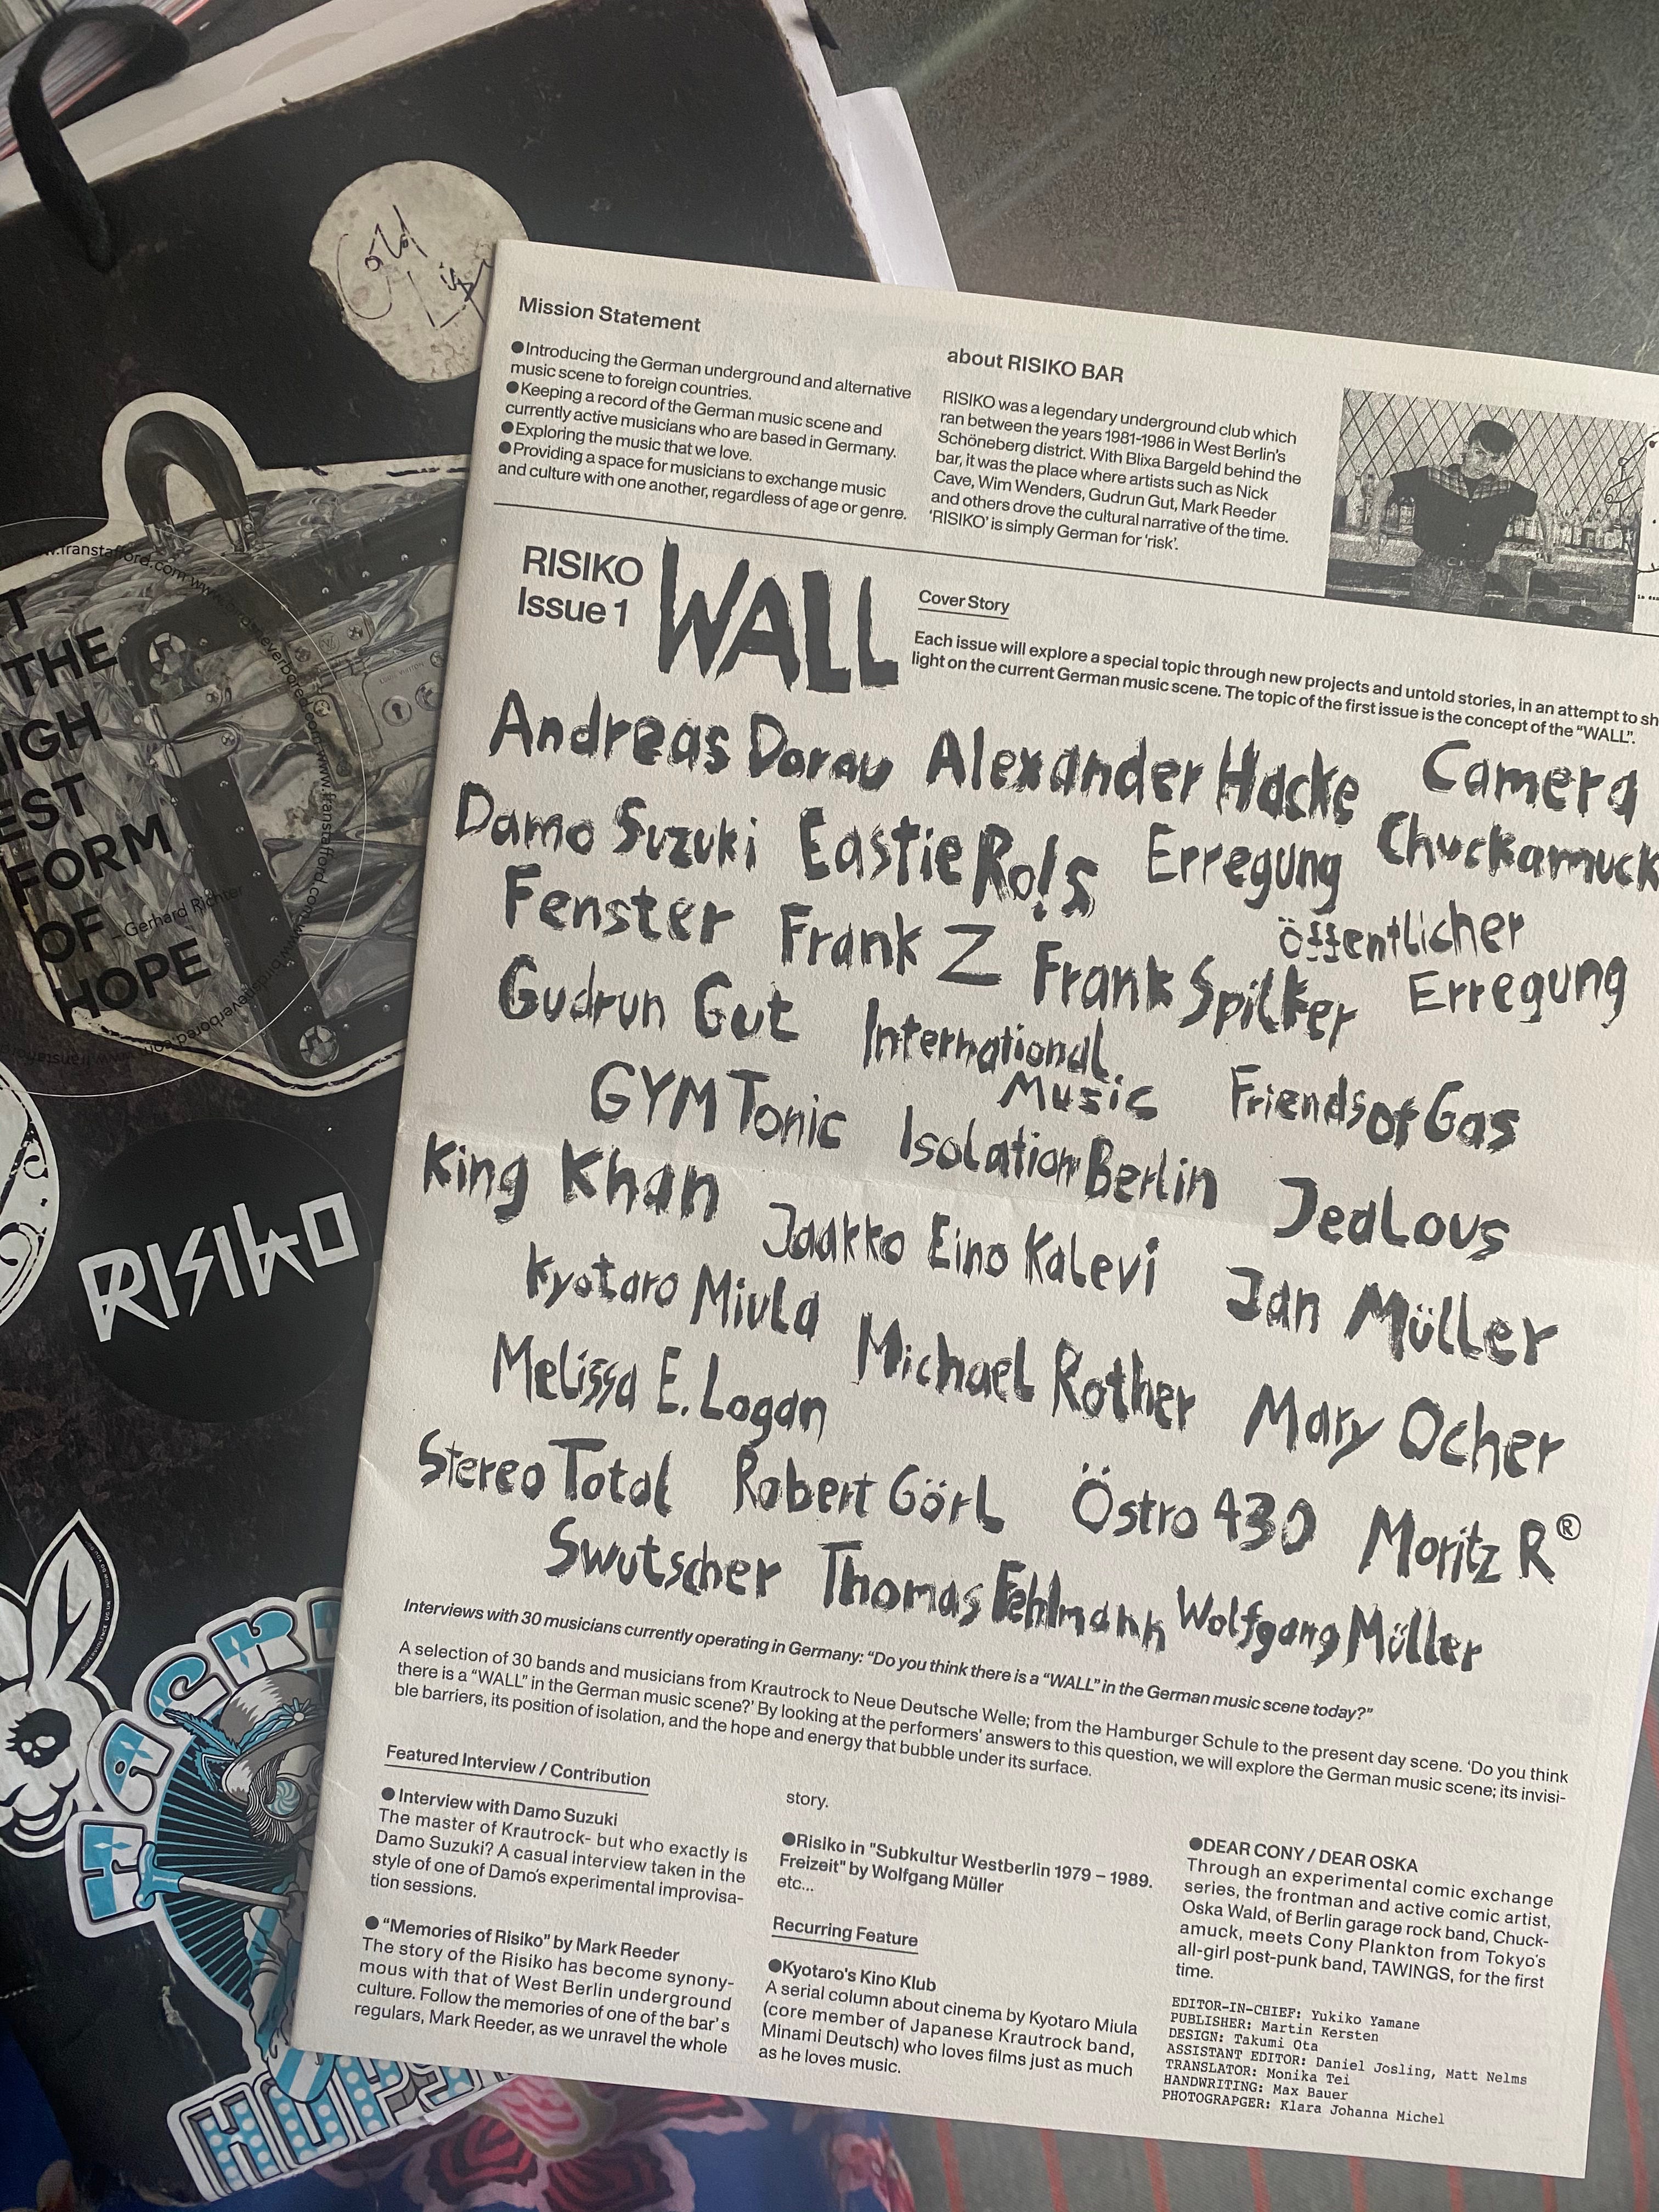 Cold
is
Mission Statement
●Introducing the German underground and alternative
music scene to foreign countries.
●Keeping a record of the German music scene and
currently active musicians who are based in Germany.
●Exploring the music that we love.
●Providing a space for musicians to exchange music
and culture with one another, regardless of age or genre.
about RISIKO BAR
RISIKO was a legendary underground club which
ran between the years 1981-1986 in West Berlin's
Schöneberg district. With Blixa Bargeld behind the
bar, it was the place where artists such as Nick
Cave, Wim Wenders, Gudrun Gut, Mark Reeder
and others drove the cultural narrative of the time.
'RISIKO' is simply German for 'risk'.
RISIKO
Issue 1
WALL
Cover Story
Each issue will explore a special topic through new projects and untold stories, in an attempt to sh
light on the current German music scene. The topic of the first issue is the concept of the “WALL”.
Andreas Dorau Alexander Hacke Camera
Damo Suzuki Eastie Ro!s Erregung Chuckamuck
Fenster Frank Z Frank Spilker öffentlicher
Erregung
Gudrun Gut International
Music Friends of Gas
GYM Tonic Isolation Berlin Jealous
King Khan Jaakko Eino Kalevi Jan Müller
Kyotaro Miula Michael Rother Mary Ocher
Melissa E. Logan
Stereo Total Robert Görl Östro 430 Moritz R®
Swutscher Thomas Fehlmann Wolfgang Müller
Interviews with 30 musicians currently operating in Germany: “Do you think there is a “WALL” in the German music scene today?”
A selection of 30 bands and musicians from Krautrock to Neue Deutsche Welle; from the Hamburger Schule to the present day scene. ‘Do you think
there is a “WALL” in the German music scene?’ By looking at the performers’ answers to this question, we will explore the German music scene; its invisi-
ble barriers, its position of isolation, and the hope and energy that bubble under its surface.
Featured Interview / Contribution
● Interview with Damo Suzuki
The master of Krautrock- but who exactly is
Damo Suzuki? A casual interview taken in the
style of one of Damo's experimental improvisa-
tion sessions.
● “Memories of Risiko” by Mark Reeder
The story of the Risiko has become synony-
mous with that of West Berlin underground
culture. Follow the memories of one of the bar's
regulars, Mark Reeder, as we unravel the whole
story.
●Risiko in "Subkultur Westberlin 1979 – 1989.
Freizeit" by Wolfgang Müller
etc...
Recurring Feature
●Kyotaro's Kino Klub
A serial column about cinema by Kyotaro Miula
(core member of Japanese Krautrock band,
Minami Deutsch) who loves films just as much
as he loves music.
●DEAR CONY / DEAR OSKA
Through an experimental comic exchange
series, the frontman and active comic artist,
Oska Wald, of Berlin garage rock band, Chuck-
amuck, meets Cony Plankton from Tokyo's
all-girl post-punk band, TAWINGS, for the first
time.
EDITOR-IN-CHIEF: Yukiko Yamane
PUBLISHER: Martin Kersten
DESIGN: Takumi Ota
ASSISTANT EDITOR: Daniel Josling, Matt Nelms
TRANSLATOR: Monika Tei
HANDWRITING: Max Bauer
PHOTOGRAPGER: Klara Johanna Michel
THE
IGH
EST
FORM
OF
HOPE
– Gerhard Richter
www.franstafford.com
RISIKO
HACKE